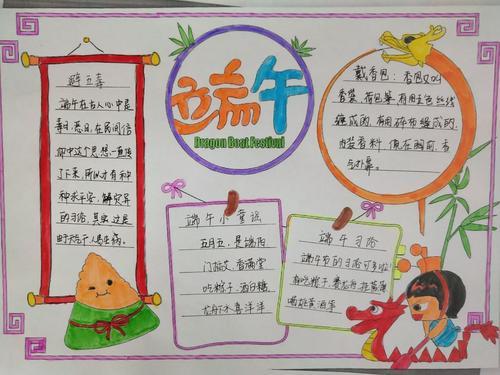 避五毒
端午在古人心中是
毒日、恶日,在民间信
仰中这个思想一直传
了下来,所以才有种
种求平安、解灾异
的习俗,其实,这是
端午
Dragon Boat Festival
戴香包:香包又叫
香袋、荷包等,有用五色丝线
缠成的,有用碎布缝成的,
内装香料,佩在胸前,香
气扑鼻。
端午小童谣
五月五,是端阳
门插艾,香满堂
吃粽子,洒白糖
龙舟下水喜洋洋
端午习俗
端午节的习俗可多啦!
有吃粽子、赛龙舟、挂菖蒲